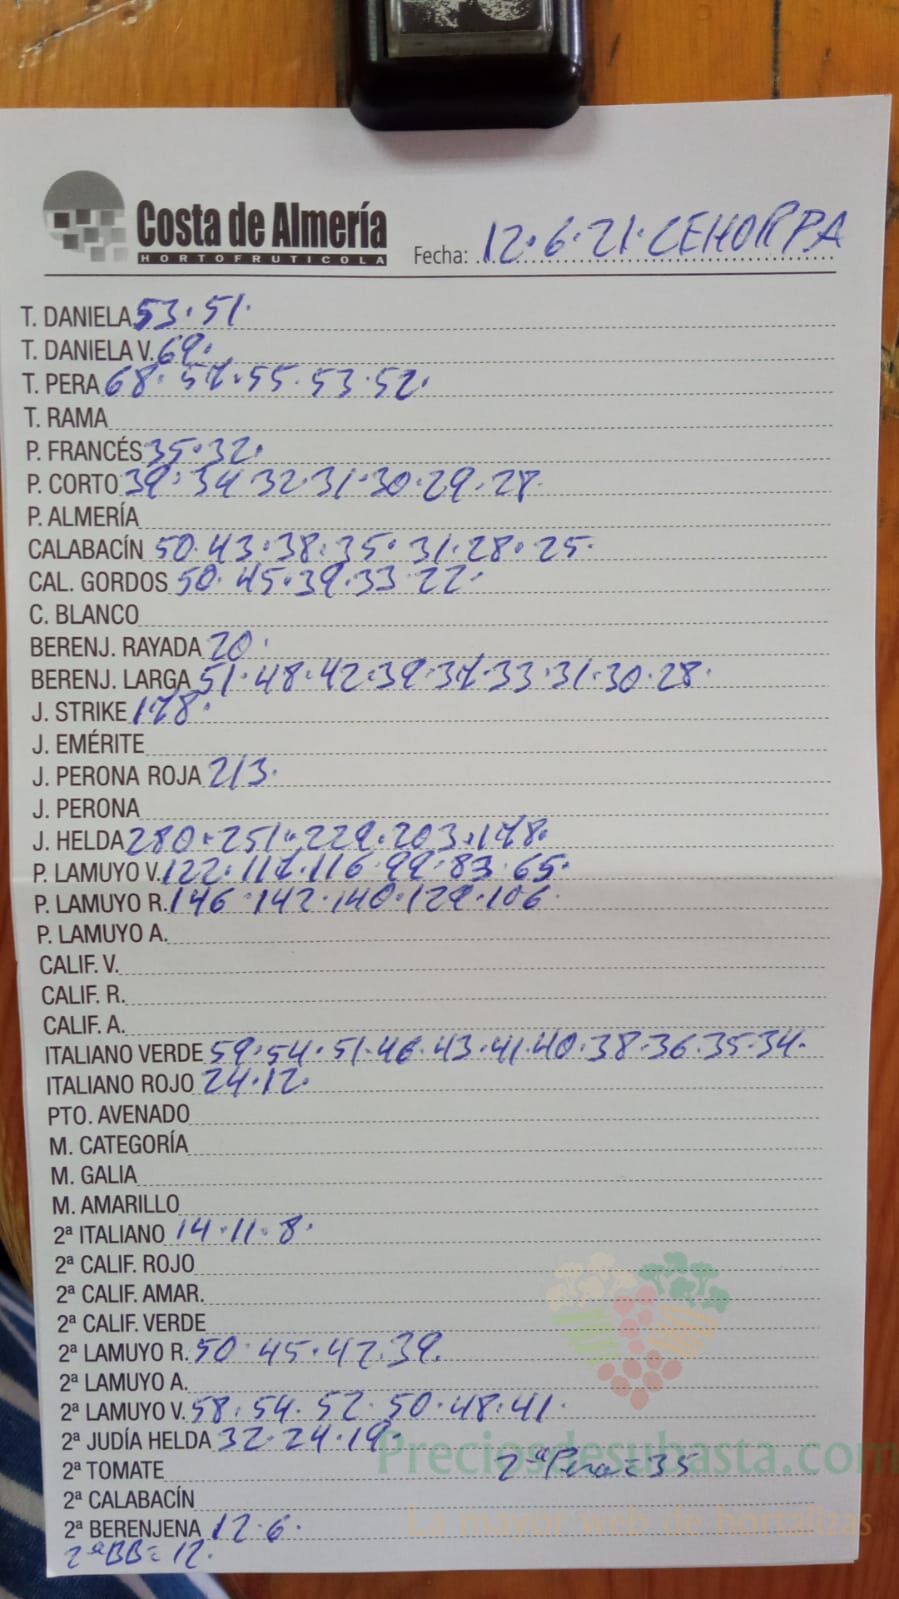 Costa de Almería
HORTOFRUTICOLA
Fecha: 12·6·21·CEHORPA
T. DANIELA 53·51·
T. DANIELA V. 69·
T. PERA 68·57·55·53·52·
T. RAMA
P. FRANCÉS 35·32·
P. CORTO 39·34 32·31·30·29·28·
P. ALMERÍA
CALABACÍN 50·43·38·35·31·28·25·
CAL. GORDOS 50·45·39·33·22·
C. BLANCO
BERENJ. RAYADA 20·
BERENJ. LARGA 51·48·42·39·37·33·31·30·28·
J. STRIKE 178·
J. EMÉRITE
J. PERONA ROJA 213·
J. PERONA
J. HELDA 280·251·229·203·178·
P. LAMUYO V. 122·117·116·99·83·65·
P. LAMUYO R. 146·142·140·129·106·
P. LAMUYO A.
CALIF. V.
CALIF. R.
CALIF. A.
ITALIANO VERDE 59·54·51·46·43·41·40·38·36·35·34·
ITALIANO ROJO 24·12·
PTO. AVENADO
M. CATEGORÍA
M. GALIA
M. AMARILLO
2ª ITALIANO 14·11·8·
2ª CALIF. ROJO
2ª CALIF. AMAR.
2ª CALIF. VERDE
2ª LAMUYO R. 50·45·42·39·
2ª LAMUYO A.
2ª LAMUYO V. 58·54·52·50·48·41·
2ª JUDÍA HELDA 32·24·19·
Preciosdesubasta.com
2ª TOMATE 2ª Pera = 35
2ª CALABACÍN
La mayor web de hortalizas
2ª BERENJENA 12·6·
2ª BB = 12·